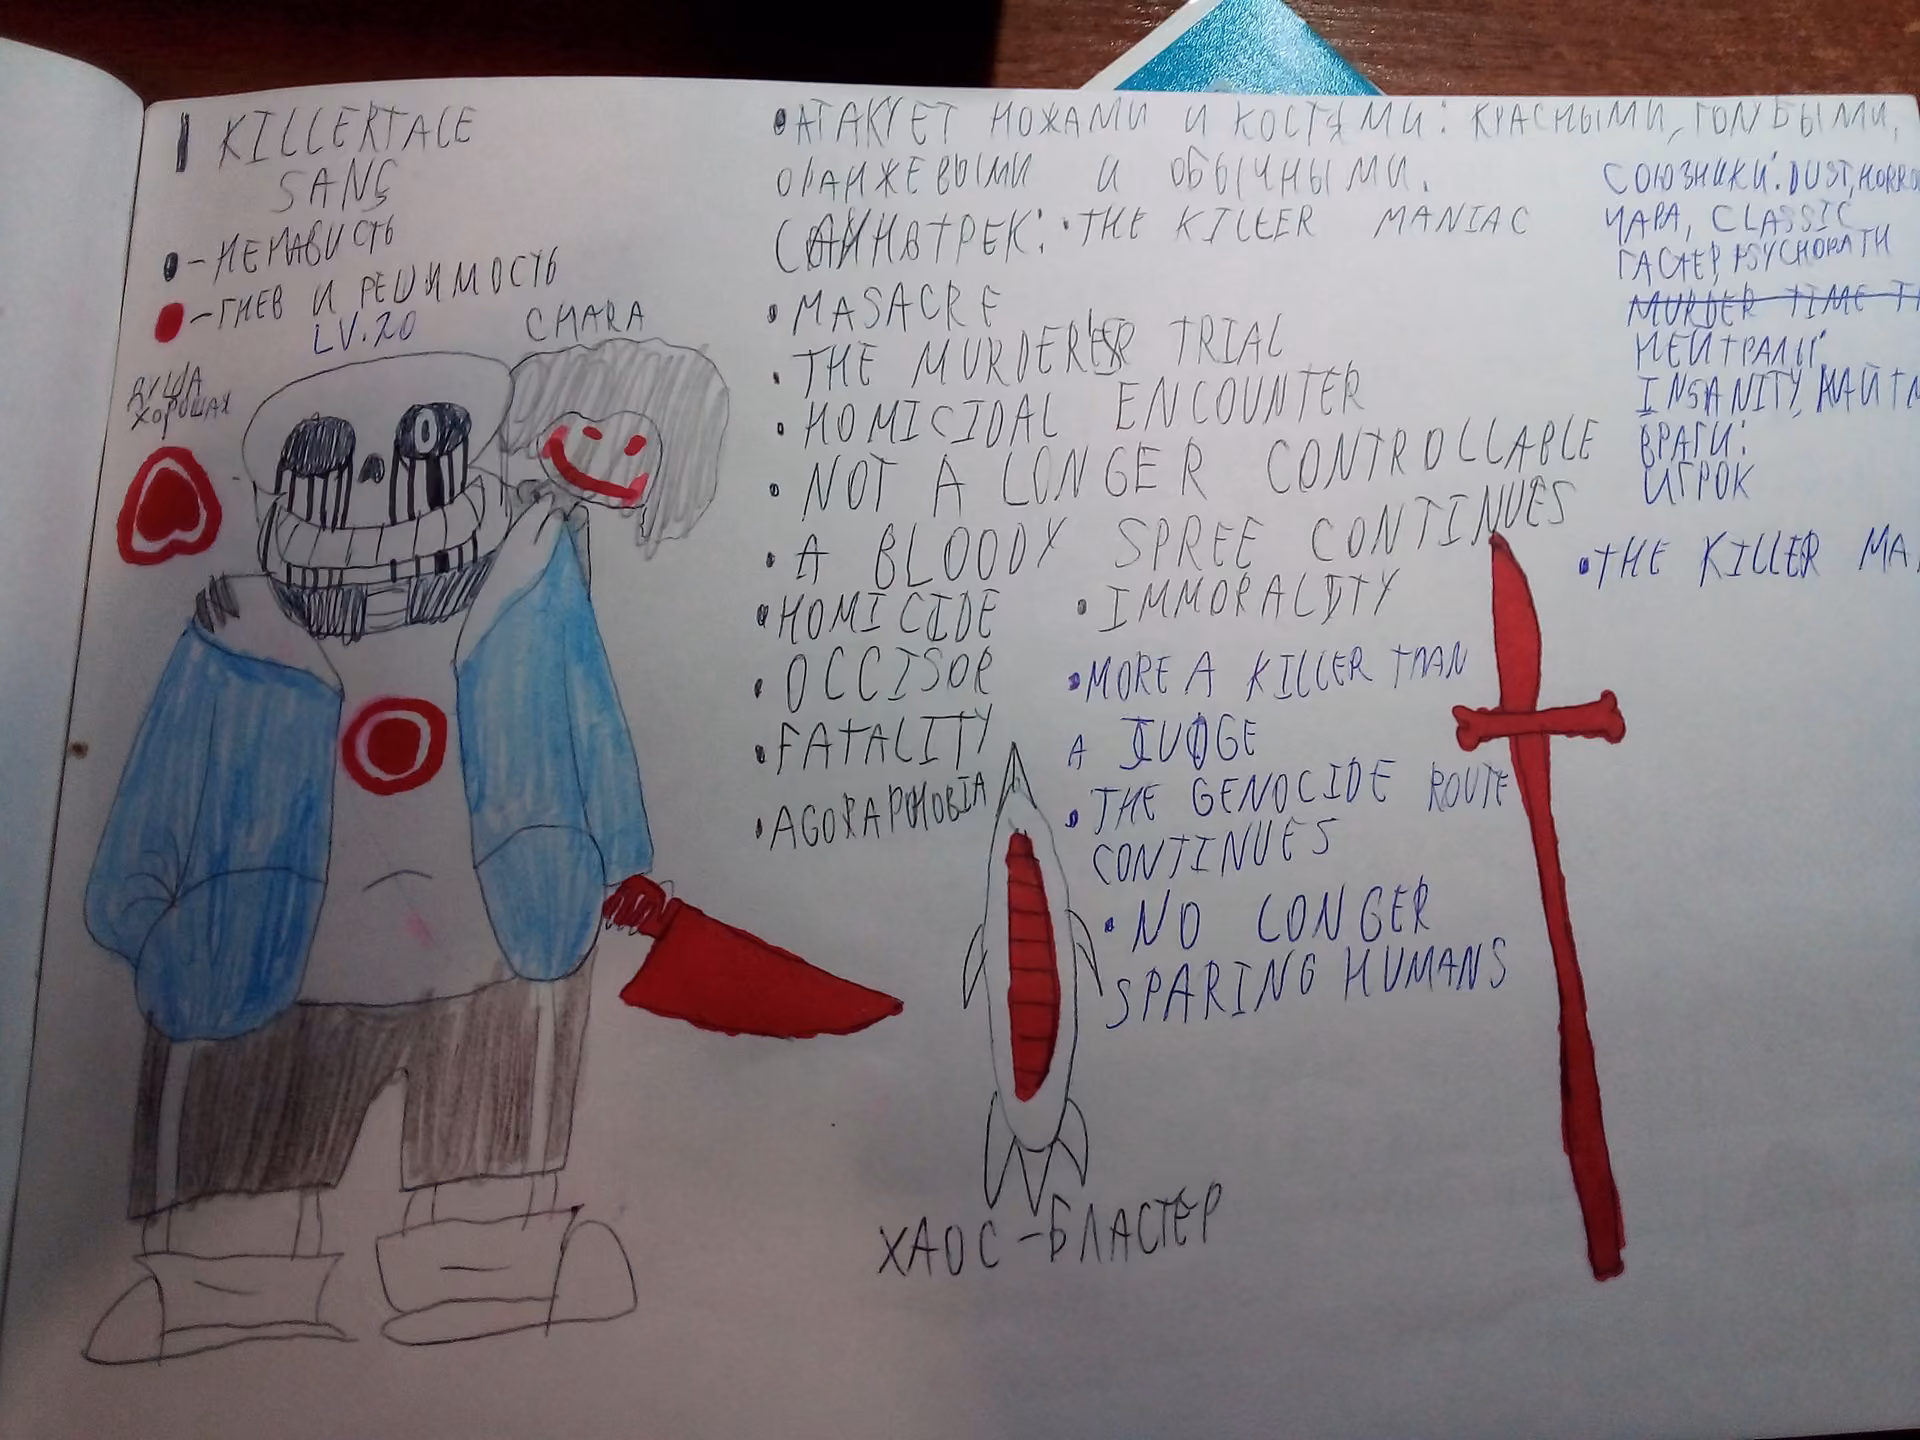 KILLERTALE
SANS
-НЕНАВИСТЬ
-ГНЕВ И РЕШИМОСТЬ
LV.20
CHARA
ДУША
ХОРОШАЯ
•АТАКУЕТ НОЖАМИ И КОСТЯМИ: КРАСНЫМИ, ГОЛУБЫМИ,
ОРАНЖЕВЫМИ И ОБЫЧНЫМИ.
САУНДТРЕК: •THE KILLER MANIAC
•MASACRE
•THE MURDERER'S TRIAL
•HOMICIDAL ENCOUNTER
•NOT A LONGER CONTROLLABLE
•A BLOODY SPREE CONTINUES
•HOMICIDE
•OCCISOR
•FATALITY
•AGORAPHOBIA
•IMMORALITY
•MORE A KILLER THAN
A JUDGE
•THE GENOCIDE ROUTE
CONTINUES
•NO LONGER
SPARING HUMANS
СОЮЗНИКИ: DUST, HORRO
ЧАРА, CLASSIC
ГАСТЕР, PSYCHOPATH
MURDER TIME T
НЕЙТРАЛЫ:
INSANITY, НАЙТМ
ВРАГИ:
ИГРОК
•THE KILLER MA
ХАОС-БЛАСТЕР